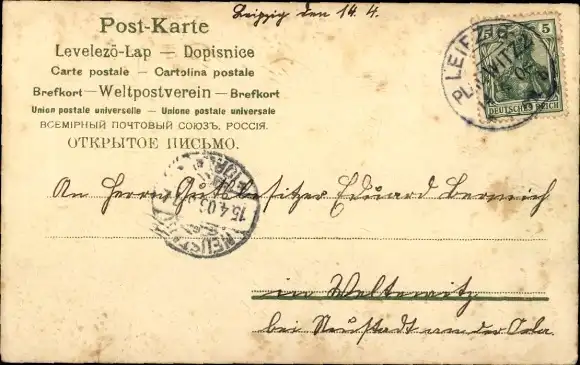 Leipzig den 14. 4.
Post-Karte
Levelező-Lap — Dopisnice
Carte postale — Cartolina postale
Brefkort — Weltpostverein — Brefkort
Union postale universelle — Unione postale universale
ВСЕМІРНЫЙ ПОЧТОВЫЙ СОЮЗЪ. РОССІЯ.
ОТКРЫТОЕ ПИСЬМО.
5
DEUTSCHES REICH
LEIPZIG
PLAGWITZ 2
15.4.03
NEUSTADT
An Herrn Gutsbesitzer Eduard
in Weltewitz
bei Neustadt an der Orla